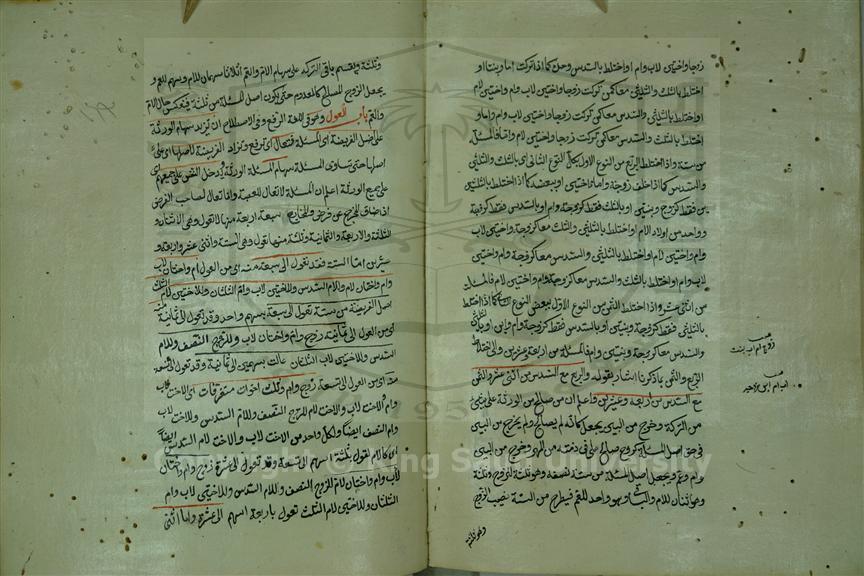 زوجا واختين لاب وام او اختلط بالسدس وحده كما اذا تركت اما وبنتا او
اختلط بالثلث والثلثين معا كمن تركت زوجا واختين لاب وام واختين لام
او اختلط بالثلثين والسدس معا كمن تركت زوجا واختين لاب وام واما او
اختلط بالثلث والسدس معا كمن تركت زوجا واختين لام واما فالمسئلة
من ستة واذا اختلط الربع من النوع الاول بكل النوع الثاني اى بالثلث والثلثين
والسدس كما اذا خلف زوجة واما واختين او ببعضه كما اذا اختلط بالثلثين
فقط كزوج وبنتين او بالثلث فقط كزوجة وام او بالسدس فقط كزوجة
وواحد من اولاد الام او اختلط بالثلثين والثلث معا كزوجة واختين لاب
وام واختين لام او اختلط بالثلثين والسدس معا كزوجة وام واختين
لاب وام او اختلط بالثلث والسدس معا كزوجة وام واختين لام فالمسئلة
من اثنى عشر واذا اختلط الثمن من النوع الاول ببعض النوع الثاني كما اذا اختلط
بالثلثين فقط كزوجة وبنتين او بالسدس فقط كزوجة وام وابن او بالثلثين
والسدس معا كزوجة وبنتين وام فالمسئلة من اربعة وعشرين والى اختلاط
الربع والثمن بما ذكرنا اشار بقوله والربع مع السدس من اثنى عشر والثمن
مع السدس من اربعة وعشرين واعلم ان من صالح من الورثة على شئ
من التركة وخرج من البين يجعل كانه لم يصالح ولم يخرج من البين
فى حق اصل المسئلة كزوج صالح على ما فى ذمته من المهر وخرج من البين
وام وعم فيجعل اصل المسئلة من ستة نصفه وهو ثلثة للزوج وثلثه
وهو اثنان للام والباقى وهو واحد للعم فيطرح من الستة نصيب الزوج
وهو ثلثة
زوج ام اب بنت
اب ام ابن
وثلثة ويقسم باقى التركة على سهام الام والعم اثلاثا سهمان للام وسهم للعم ولا
يجعل الزوج المصالح كالمعدوم حتى يكون اصل المسئلة من ثلثة فينعكس حال الام
والعم باب العول وهو فى اللغة الرفع وفى الاصطلاح ان تزيد سهام الورثة
على اصل الفريضة اى المسئلة فتعال اى ترفع وتزاد الفريضة لاصلها اى على
اصلها حتى تساوى المسئلة سهام الورثة ويدخل النقص على جميعهم اى
على جميع الورثة اعلم ان المسئلة لا تعال للعصبة وانما تعال لصاحب الفرض
اذا ضاق المخرج عن فرض والمخارج سبعة اربعة منها لا تعول وهى الاثنان و
الثلثة والاربعة والثمانية وثلثة منها تعول وهى الستة واثنى عشر واربعة و
عشرين اما الستة فقد تعول الى سبعة اى من العول ام واختان لاب
وام واختان لام للام السدس وللاختين لاب وام الثلثان وللاختين لام الثلث
اصل الفريضة من ستة تعول الى سبعة بسهم واحد وقد تعول الى ثمانية
اى من العول الى ثمانية زوج وام واختان لاب وللزوج النصف وللام
السدس وللاختين لاب الثلثان عالت بسهمين الى ثمانية وقد تعول الى تسعة
اى من العول الى تسعة زوج وام وثلث اخوات متفرقات اى الاخت لاب
وام والاخت لاب والاخت لام للزوج النصف وللام السدس وللاخت لاب
وام النصف ايضا ولكل واحد من الاخت لاب والاخت لام السدس ايضا
اى كالام تعول بثلثة اسهم الى تسعة وقد تعول الى عشرة زوج وام واختان
لاب وام واختان لام للزوج النصف وللام السدس وللاختين لاب وام
الثلثان وللاختين لام الثلث تعول باربعة اسهم الى عشرة واما اثنى
Copyright © King Saud University